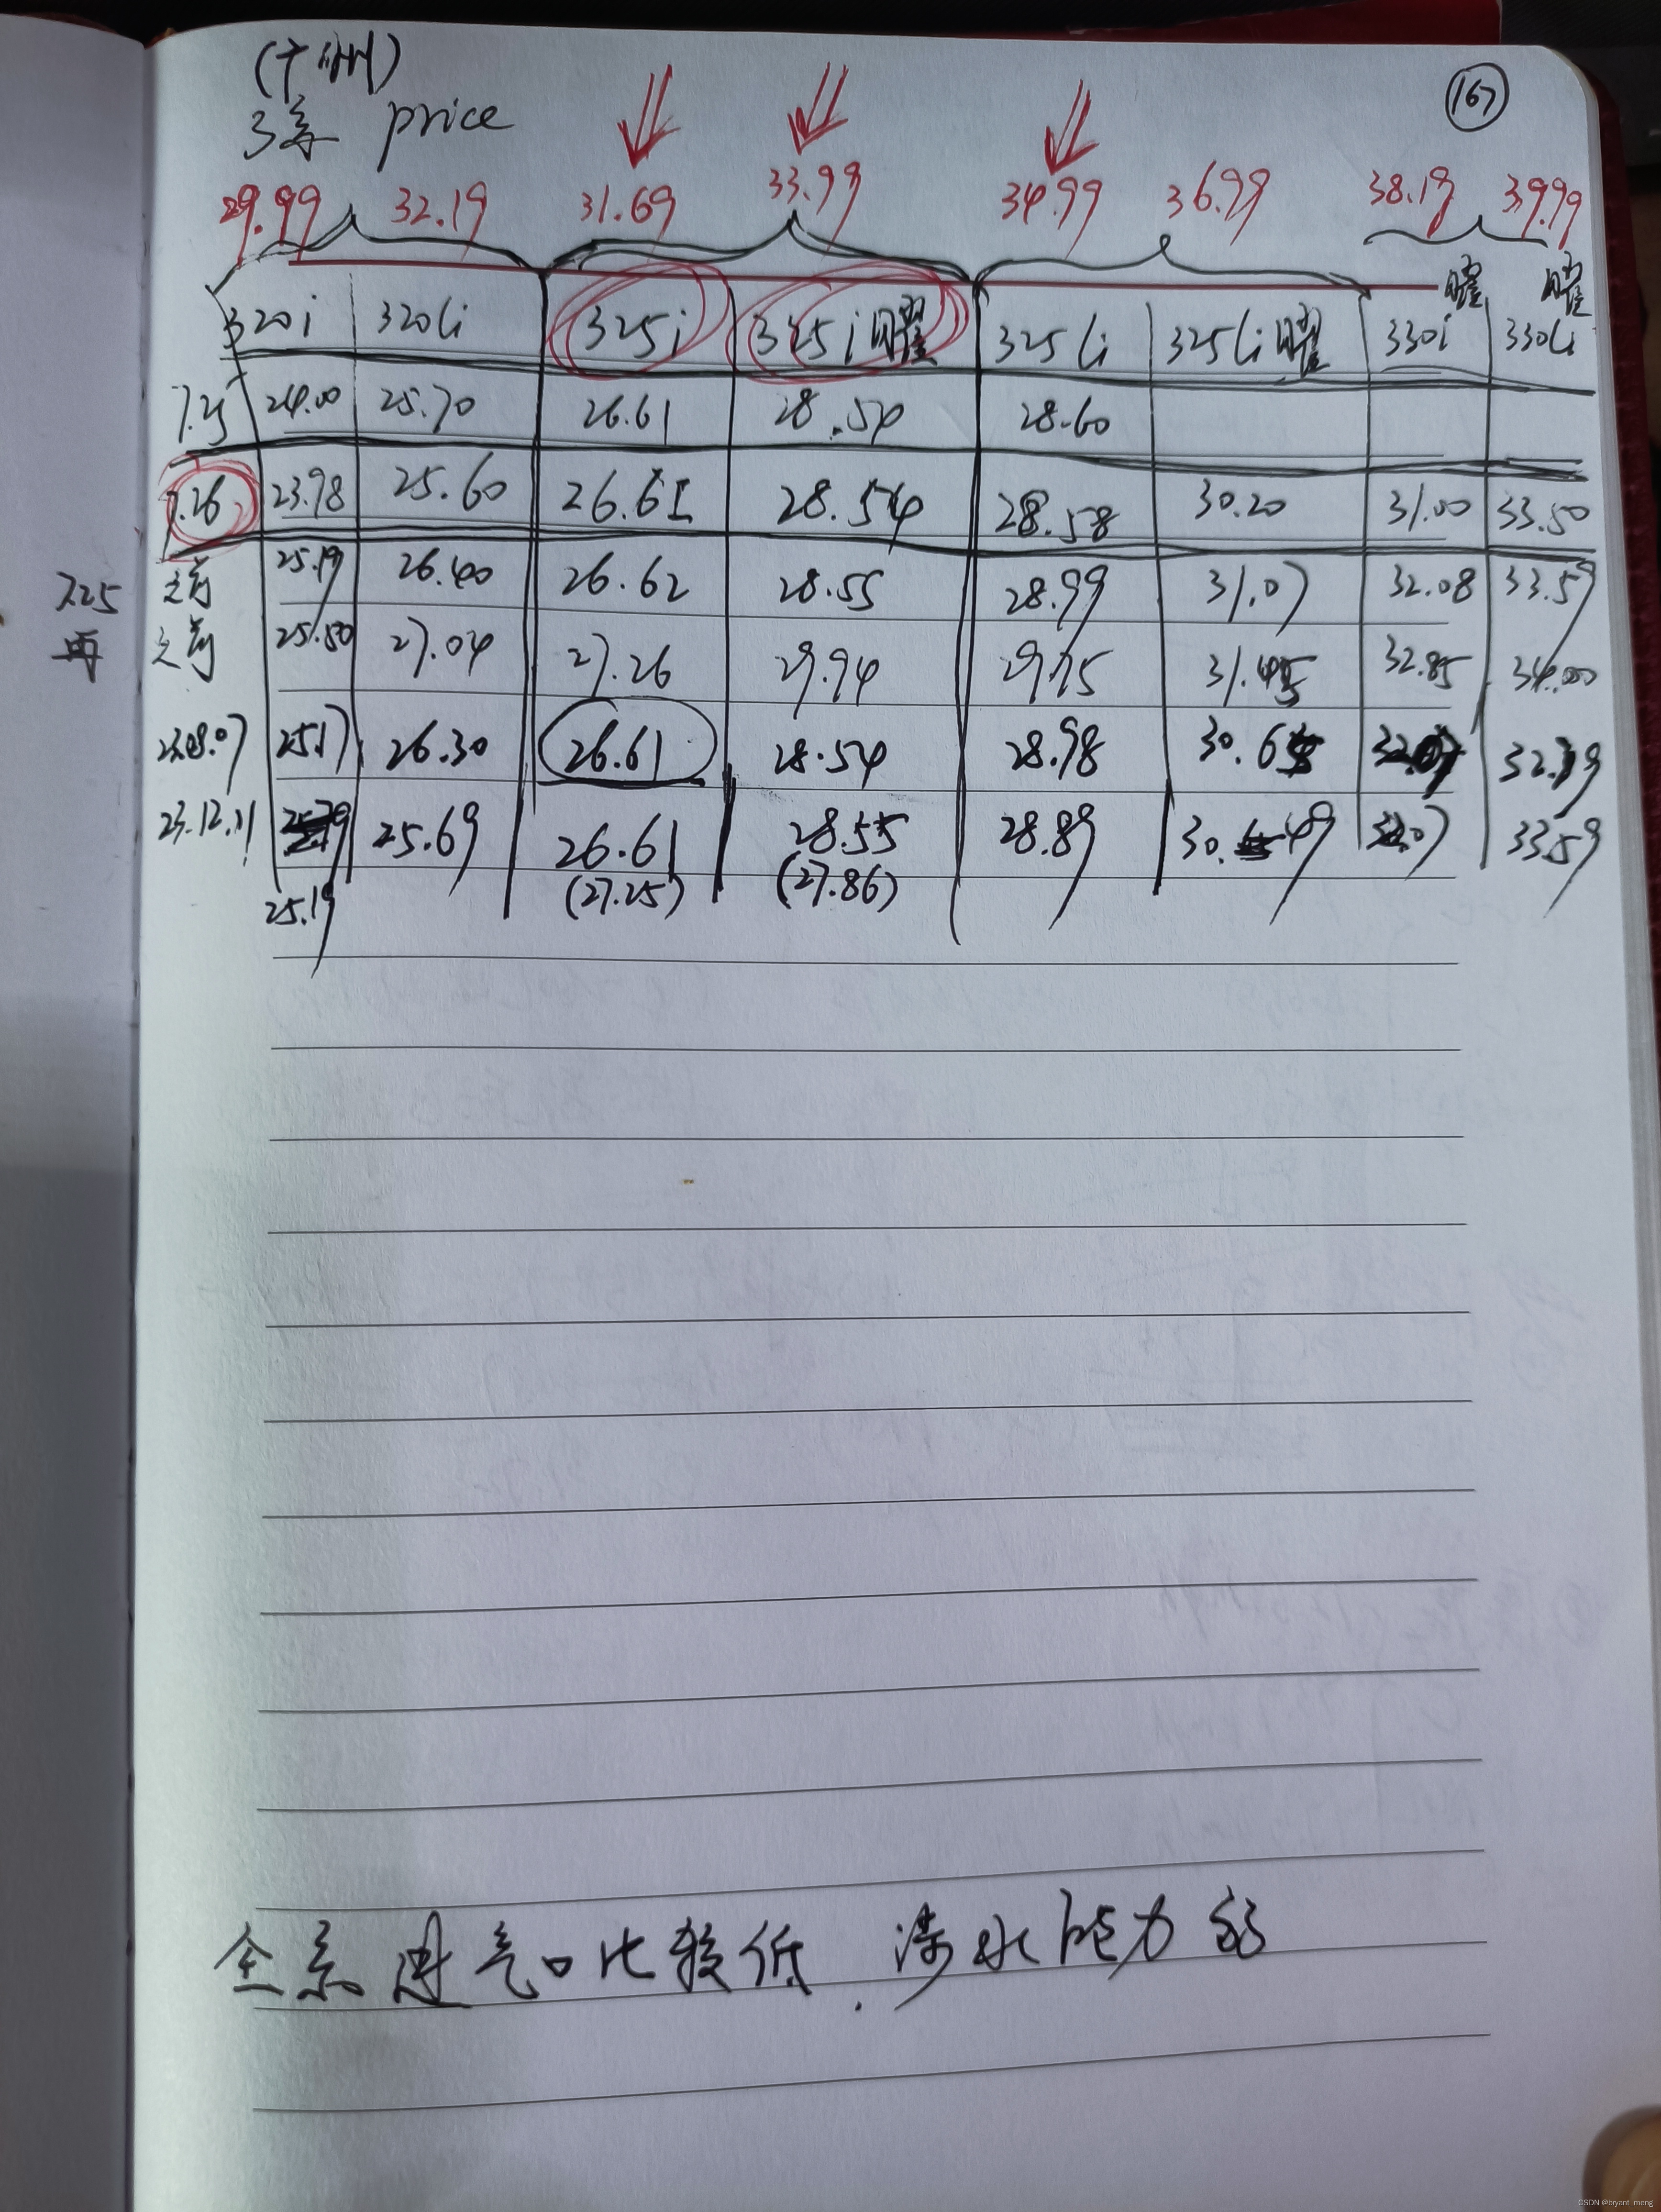 (广州)
167
3系 price
29.99 32.19 31.69 33.99 34.99 36.99 38.19 39.99
曜 曜
320i 320Li 325i 325i曜 325Li 325Li曜 330i 330Li
7.25 24.00 25.70 26.61 28.54 28.60
7.26 23.98 25.60 26.61 28.54 28.58 30.20 31.00 33.50
之前 25.19 26.40 26.62 28.55 28.99 31.07 32.08 33.59
7.25
再
之前 25.50 27.04 27.26 29.94 29.75 31.45 32.85 34.00
23.08.07 25.17 26.30 26.61 28.54 28.98 30.65
23.12.21 25.69 26.61 28.55 28.89 30.49 33.59
25.19 (27.25) (27.86)
全系进气口比较低.涉水能力弱
CSDN @bryant_meng